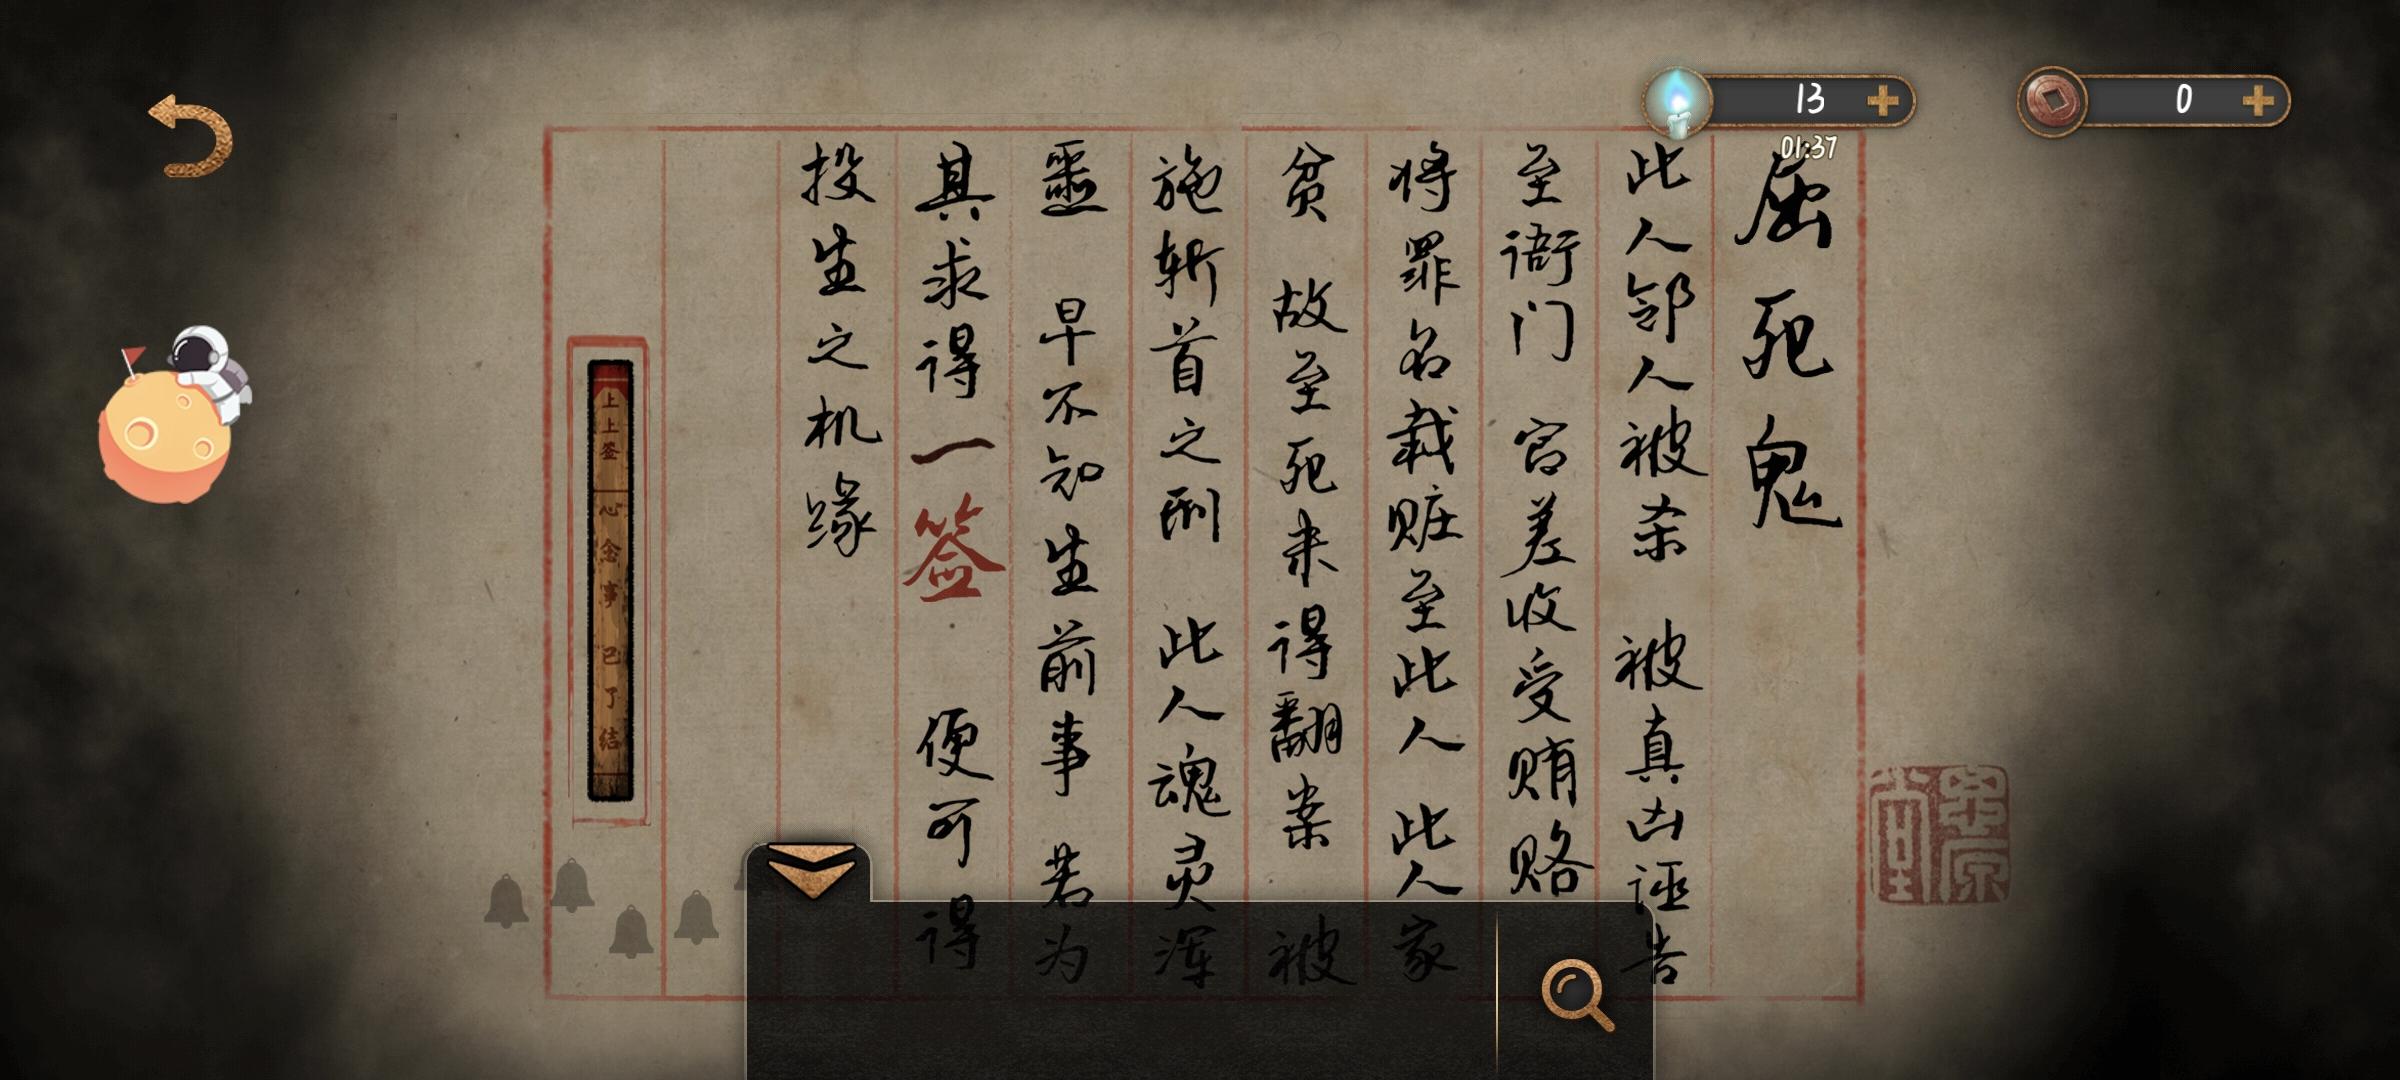 13
01:37
0
屈死鬼
此人邻人被杀 被真凶诬告
至衙门 官差收受贿赂
将罪名栽赃至此人 此人家
贫 故至死未得翻案 被
施斩首之刑 此人魂灵浑
噩 早不知生前事 若为
其求得一签 便可得
投生之机缘
上上签
心念事已了结